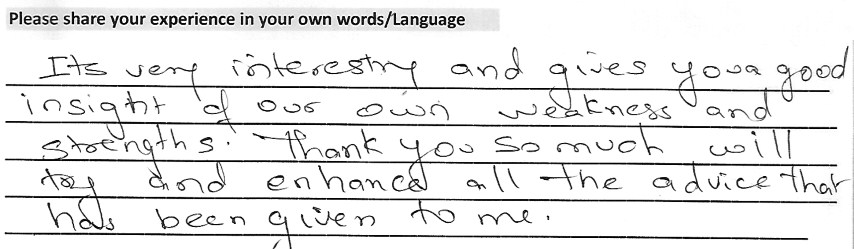 Please share your experience in your own words/Language
Its very interesting and gives you a good
insight of our own weakness and
strengths. Thank you so much will
try and enhance all the advice that
has been given to me.